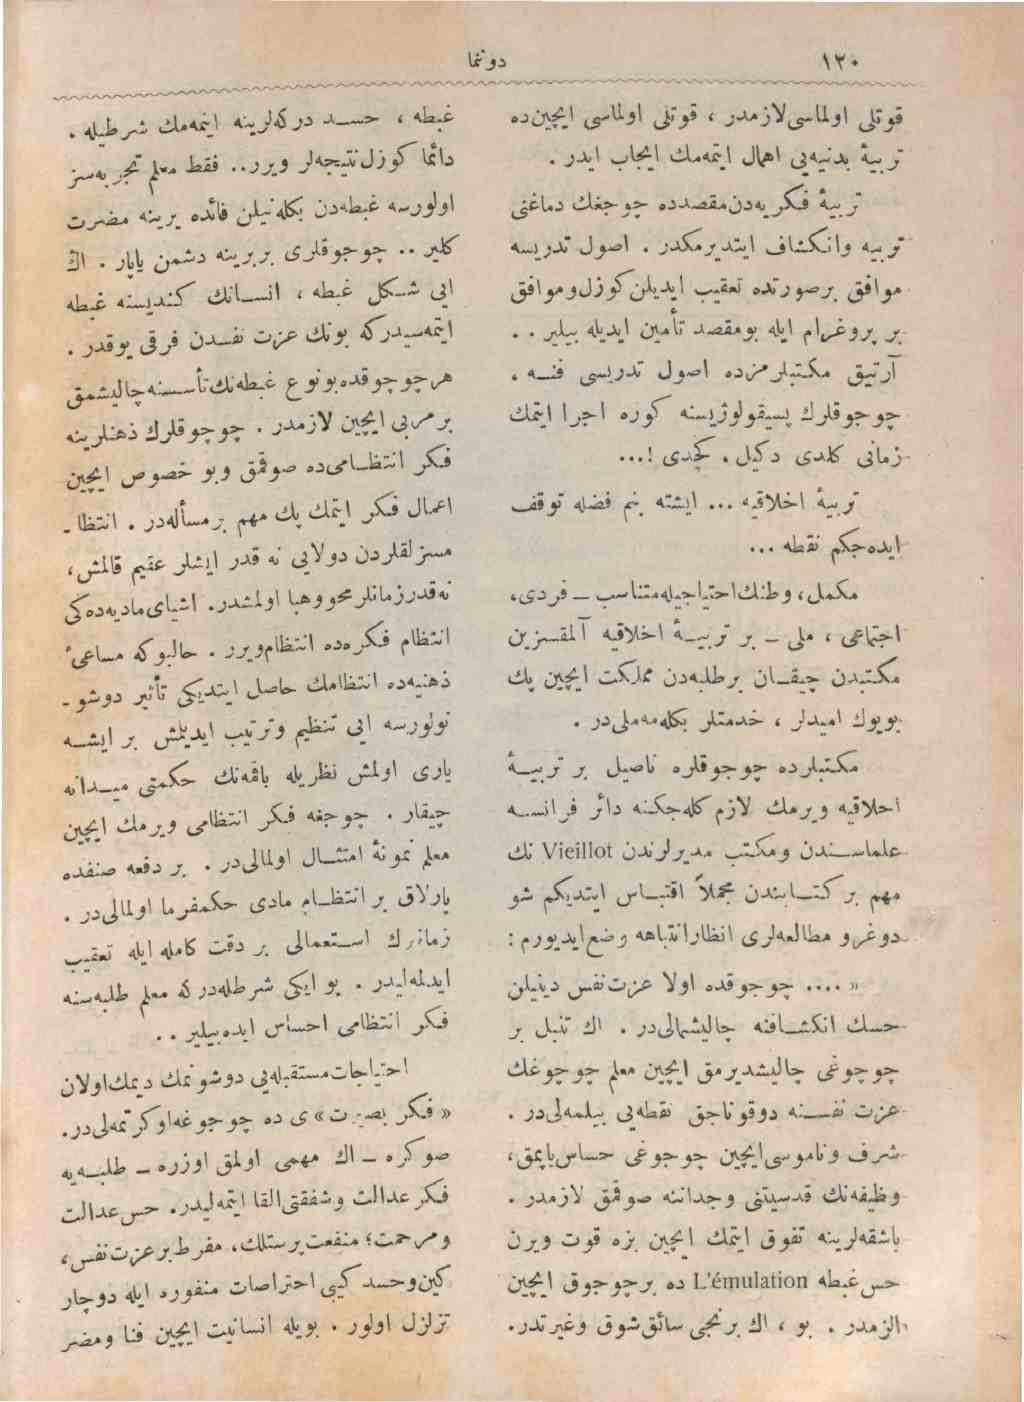 ١٢٠
دوننما
قوتلی اولماسی لازمدر ، قوتلی اولماسی ایچین ده
تربیهٔ بدنیه‌یی اهمال ایتمه‌مك ایجاب ایدر .
تربیهٔ فكریه‌دن مقصدده چوجغك دماغنی
تربیه وانكشاف ایتدیرمكدر . اصول تدریسه
موافق برصورتده تعقیب ایدیلن كوزل وموافق
بر پروغرام ایله بومقصد تأمین ایدیله بیلیر . .
آرتیق مكتبلرمزده اصول تدریسی فنـه ،
چوجوقلرك پسیقولوژیسنه كوره اجرا ایتمك
زمانی كلدی دكیل . كچدی !...
تربیهٔ اخلاقیه ... ایشته بنم فضله توقف
ایده‌جكم نقطه ...
مكمل ، وطنك احتیاجیله متناسب ــ فردی ،
اجتماعی ، ملی ــ بر تربیـهٔ اخلاقیه آلمقسزین
مكتبدن چیقـان برطلبه‌دن مملكت ایچین پك
بویوك امیدلر ، خدمتلر بكله‌مه‌ملی‌در .
مكتبلرده چوجوقلره ناصیل بر تربیـهٔ
اخلاقیه ویرمك لازم كله‌جكنه دائر فرانسـه
علماسـندن ومكتب مدیرلرندن Vieillot نك
مهم بر كتـابندن مجملاً اقتبـاس ایتدیكم شو
دوغرو مطالعه‌لری انظارانتباهه وضع ایدیورم :
« .... چوجوقده اولا عزت نفس دینیلن
حسك انكشـافنه چالیشمالی‌در . اك تنبل بر
چوجوغی چالیشدیرمق ایچین معلم چوجوغك
عزت نفسـنه دوقوناجق نقطه‌یی بیلمه‌لی‌در .
شرف وناموسی ایچین چوجوغی حساس یاپمق ،
وظیفه‌نك قدسیتنی وجداننه صوقمق لازمدر .
باشقه‌لرینه تفوق ایتمك ایچین بزه قوت ویرن
حس غبطه L'émulation ده برچوجوق ایچین
الزمدر . بو ، اك برنجی سائق شوق وغیرتدر .
غبطه ، حسـد دركه‌لرینه اینمه‌مك شرطیله .
دائما كوزل نتیجه‌لر ویرر .. فقط معلم تجربه‌سز
اولورسه غبطه‌دن بكله‌نیلن فائده یرینه مضرت
كلیر .. چوجوقلری بربرینه دشمن یاپار . اك
ایی شـكل غبطه ، انسـانك كندیسنه غبطه
ایتمه‌سیدركه بونك عزت نفسدن فرقی یوقدر .
هرچوجوقده بونوع غبطه‌نك تأسـسنه چالیشمق
برمربی ایچین لازمدر . چوجوقلرك ذهنلرینه
فكر انتظـامی‌ده صوقمق وبو خصوص ایچین
اعمال فكر ایتمك پك مهم برمسأله‌در . انتظا ـ
مسزلقلردن دولایی نه قدر ایشلر عقیم قالمش ،
نه‌قدرزمانلر محووهبا اولمشدر . اشیای مادیه‌ده‌كی
انتظام فكره‌ده انتظام‌ویرر . حالبوكه مساعیٔ
ذهنیه‌ده انتظامك حاصل ایتدیكی تأثیر دوشو ـ
نولورسه ایی تنظیم وترتیب ایدیلمش بر ایشـه
یاری اولمش نظریله باقمه‌نك حكمتی میـدانه
چیقار . چوجغه فكر انتظامی ویرمك ایچین
معلم نمونهٔ امتثـال اولمالی‌در . بر دفعه صنفده
پارلاق بر انتظـام مادی حكمفرما اولمالی‌در .
زمانك اسـتعمالی بر دقت كامله ایله تعقیب
ایدلمه‌لیدر . بو ایكی شرطله‌دركه معلم طلبه‌سنه
فكر انتظامی احساس ایده‌بیلیر . .
احتیاجات مستقبله‌یی دوشونمك دیمك‌اولان
« فكر بصیرت » ی ده چوجوغه‌اوكرتمه‌لی‌در .
صوكره ــ اك مهمی اولمق اوزره ــ طلبـه‌یه
فكر عدالت وشفقتی القا ایتمه‌لیدر . حس عدالت
ومرحمت ؛ منفعت پرستلك ، مفرط برعزت نفس ،
كین وحسد كیبی احتراصات منفوره ایله دوچار
تزلزل اولور . بویله انسانیت ایچین فنا ومضر